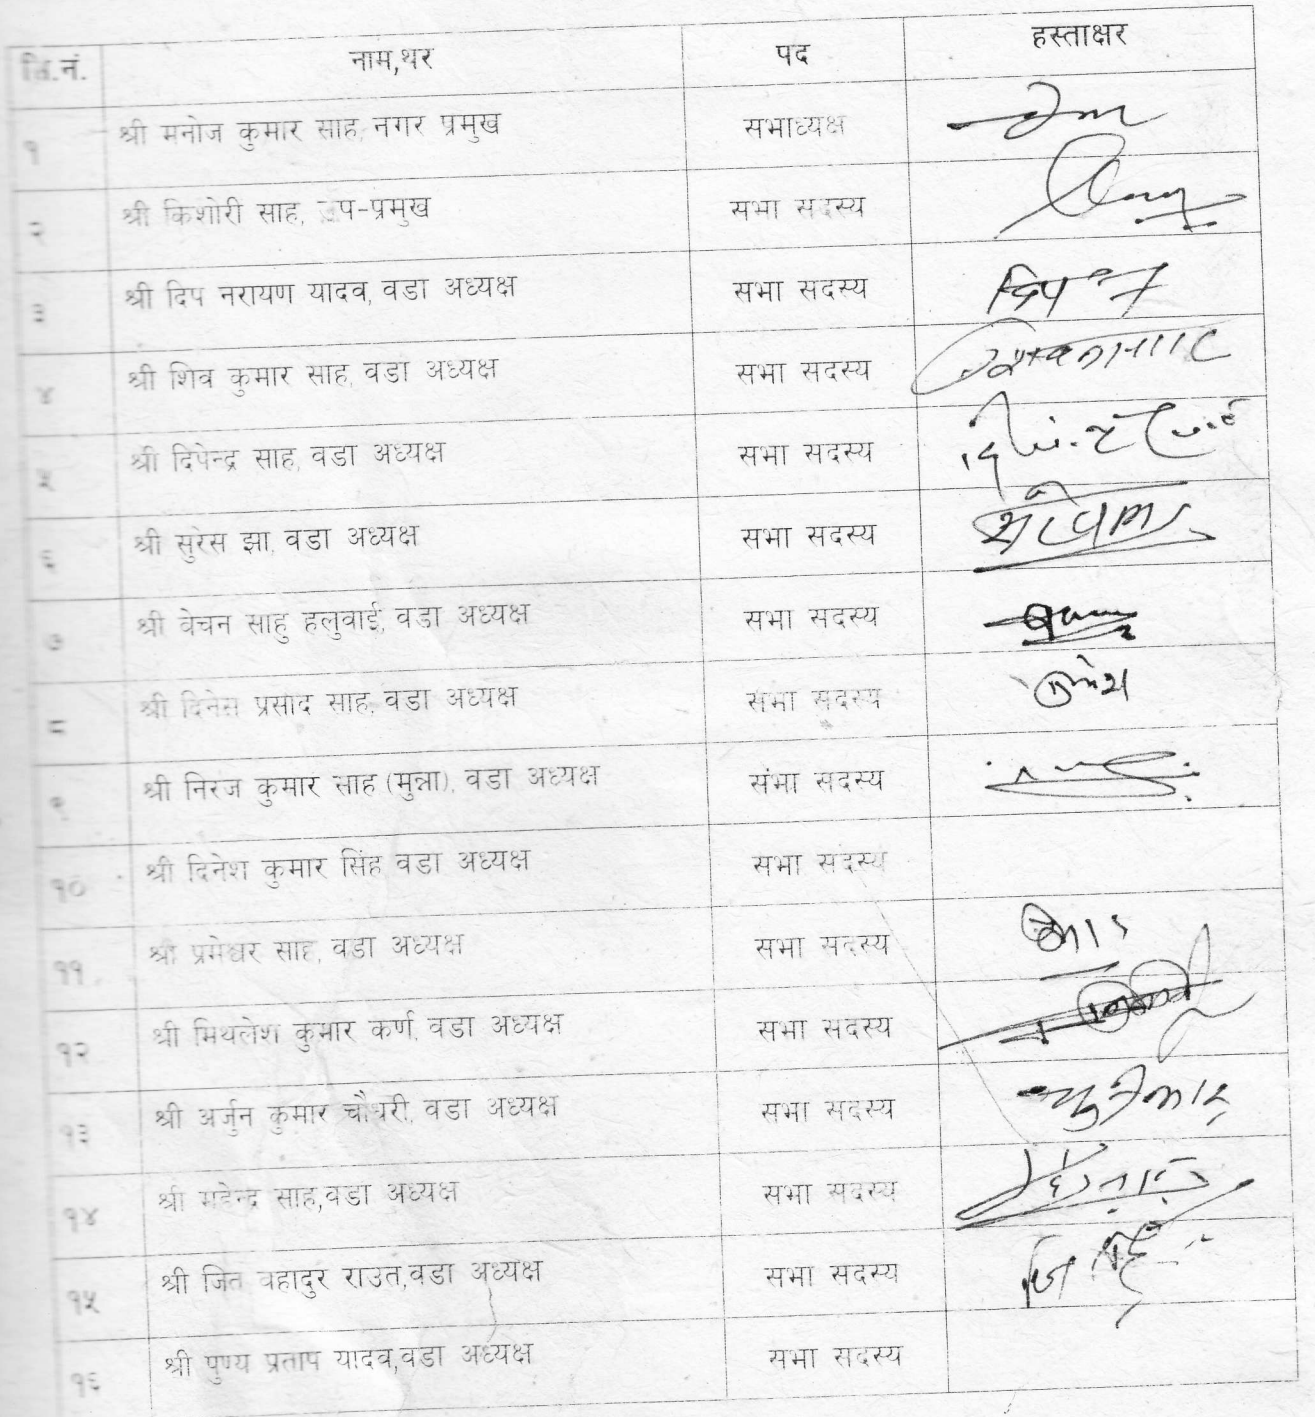 सि.नं. नाम,थर पद हस्ताक्षर
१ श्री मनोज कुमार साह, नगर प्रमुख सभाध्यक्ष
२ श्री किशोरी साह, उप-प्रमुख सभा सदस्य
३ श्री दिप नरायण यादव, वडा अध्यक्ष सभा सदस्य
४ श्री शिव कुमार साह, वडा अध्यक्ष सभा सदस्य
५ श्री दिपेन्द्र साह, वडा अध्यक्ष सभा सदस्य
६ श्री सुरेस झा, वडा अध्यक्ष सभा सदस्य
७ श्री वेचन साहु हलुवाई, वडा अध्यक्ष सभा सदस्य
८ श्री दिनेस प्रसाद साह, वडा अध्यक्ष सभा सदस्य
९ श्री निरज कुमार साह (मुन्ना), वडा अध्यक्ष सभा सदस्य
१० श्री दिनेश कुमार सिंह वडा अध्यक्ष सभा सदस्य
११ श्री प्रमेश्वर साह, वडा अध्यक्ष सभा सदस्य
१२ श्री मिथलेश कुमार कर्ण, वडा अध्यक्ष सभा सदस्य
१३ श्री अर्जुन कुमार चौधरी, वडा अध्यक्ष सभा सदस्य
१४ श्री महेन्द्र साह,वडा अध्यक्ष सभा सदस्य
१५ श्री जित वहादुर राउत,वडा अध्यक्ष सभा सदस्य
१६ श्री पुण्य प्रताप यादव,वडा अध्यक्ष सभा सदस्य